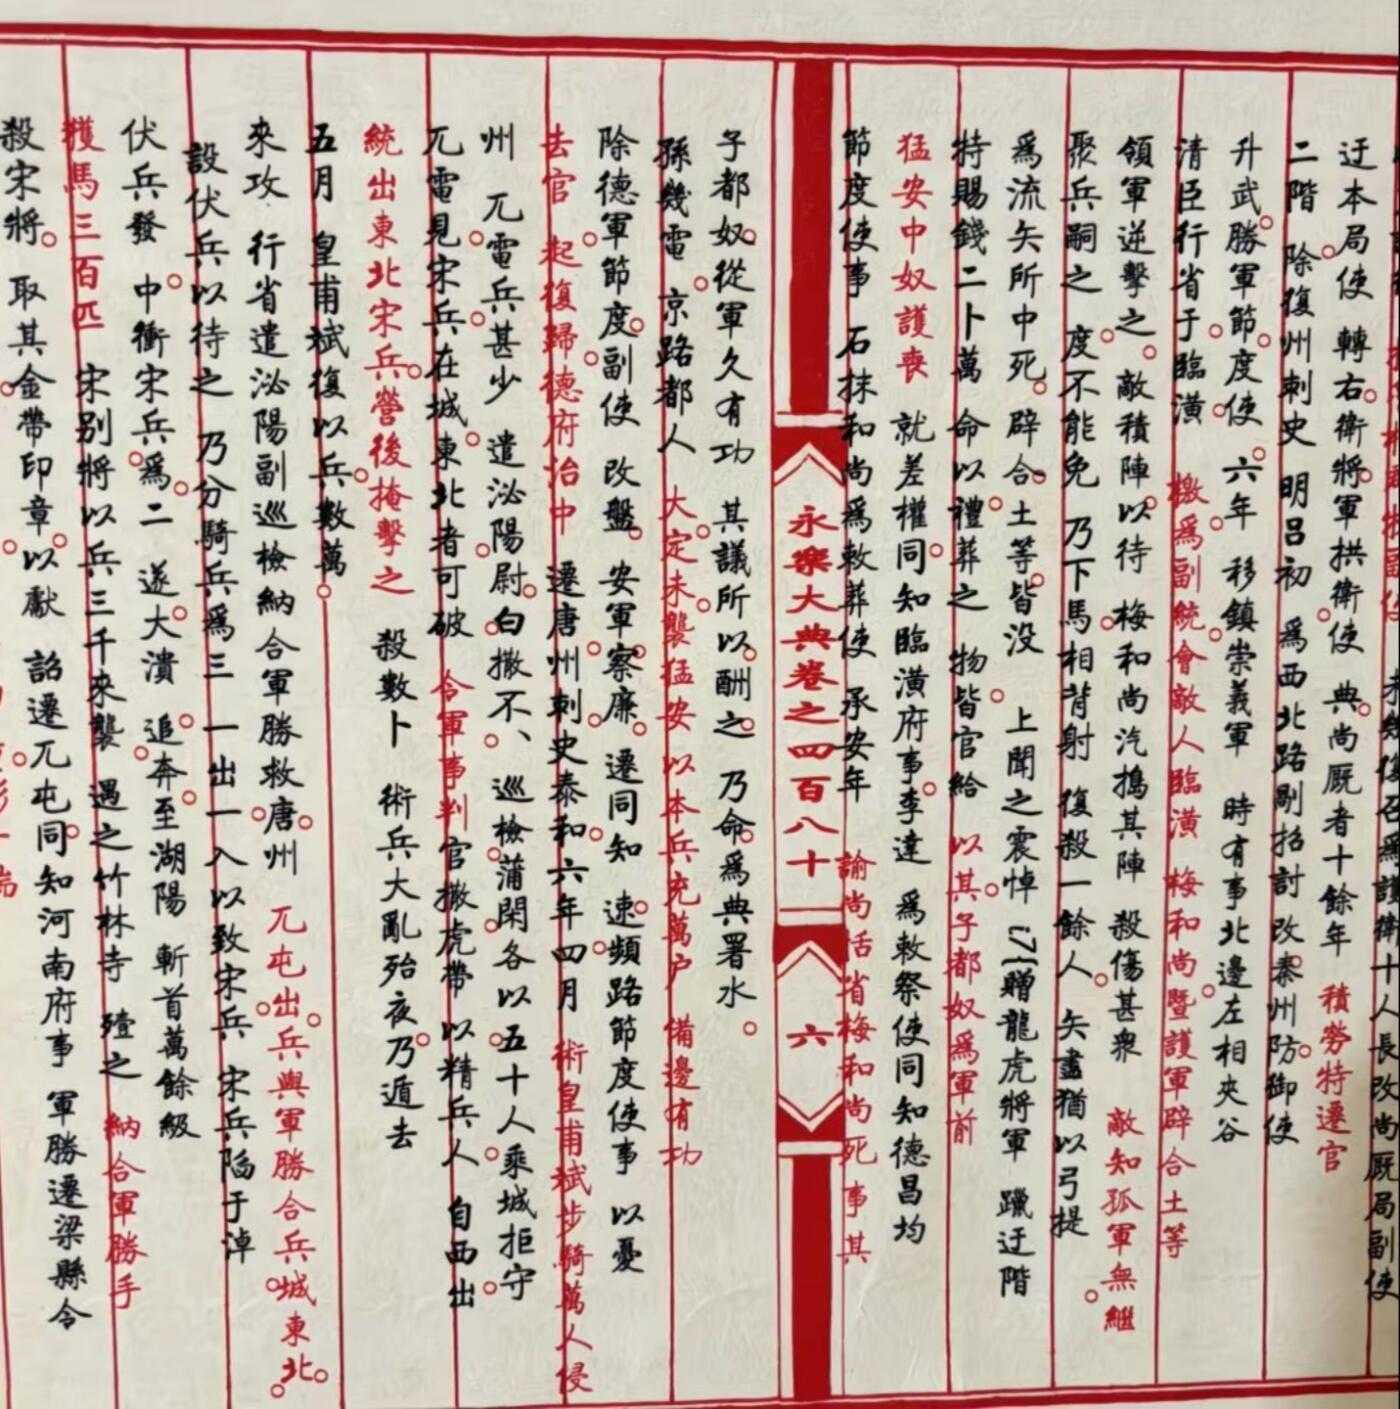 迂本局使 轉右衛將軍拱衛使 典尚厩者十餘年 積勞特遷官
二階 除復州刺史 明呂初 爲西北路剛招討改泰州防御使
升武勝軍節度使 六年 移鎮崇義軍 時有事北邊左相夾谷
清臣行省于臨潢 檄爲副統會敵人臨潢 梅和尚暨護軍辟合土等
領軍逆擊之 敵積陣以待 梅和尚汽搗其陣 殺傷甚衆 敵知孤軍無繼
聚兵嗣之 度不能免 乃下馬相背射 復殺一餘人 矢盡猶以弓提
爲流矢所中死 辟合土等皆没 上聞之震悼 贈龍虎將軍 躐迂階
特賜錢二卜萬 命以禮葬之 物皆官給 以其子都奴爲軍前
猛安中奴護喪 就差權同知臨潢府事李達 爲敕祭使同知德昌均
節度使事 石抹和尚爲敕葬使 承安年 諭尚活省梅和尚死事其
永樂大典卷之四百八十 六
子都奴從軍久有功 其議所以酬之 乃命爲典署水
孫幾電 京路都人 大定未襲猛安以本兵充萬户 備邊有功
除德軍節度副使 改盤 安軍察廉 遷同知 速頻路節度使事 以憂
去官 起復歸德府治中 遷唐州刺史泰和六年四月 術皇甫斌步騎萬人侵
州 兀電兵甚少 遣泌陽尉白撒不、巡檢蒲閑各以五十人乘城拒守
兀電見宋兵在城東北者可破 令軍事判官撒虎帶 以精兵人 自西出
統出東北宋兵營後掩擊之 殺數卜 術兵大亂殆夜乃遁去
五月 皇甫斌復以兵數萬
來攻 行省遣泌陽副巡檢納合軍勝救唐州 兀屯出兵與軍勝合兵城東北
設伏兵以待之 乃分騎兵爲三 一出一入以致宋兵 宋兵陷于淖
伏兵發 中衝宋兵爲二 遂大潰 追奔至湖陽 斬首萬餘級
獲馬三百匹 宋别將以兵三千來襲 遇之竹林寺 殪之 納合軍勝手
殺宋將 取其金帶印章以獻 詔遷兀屯同知河南府事 軍勝遷梁縣令